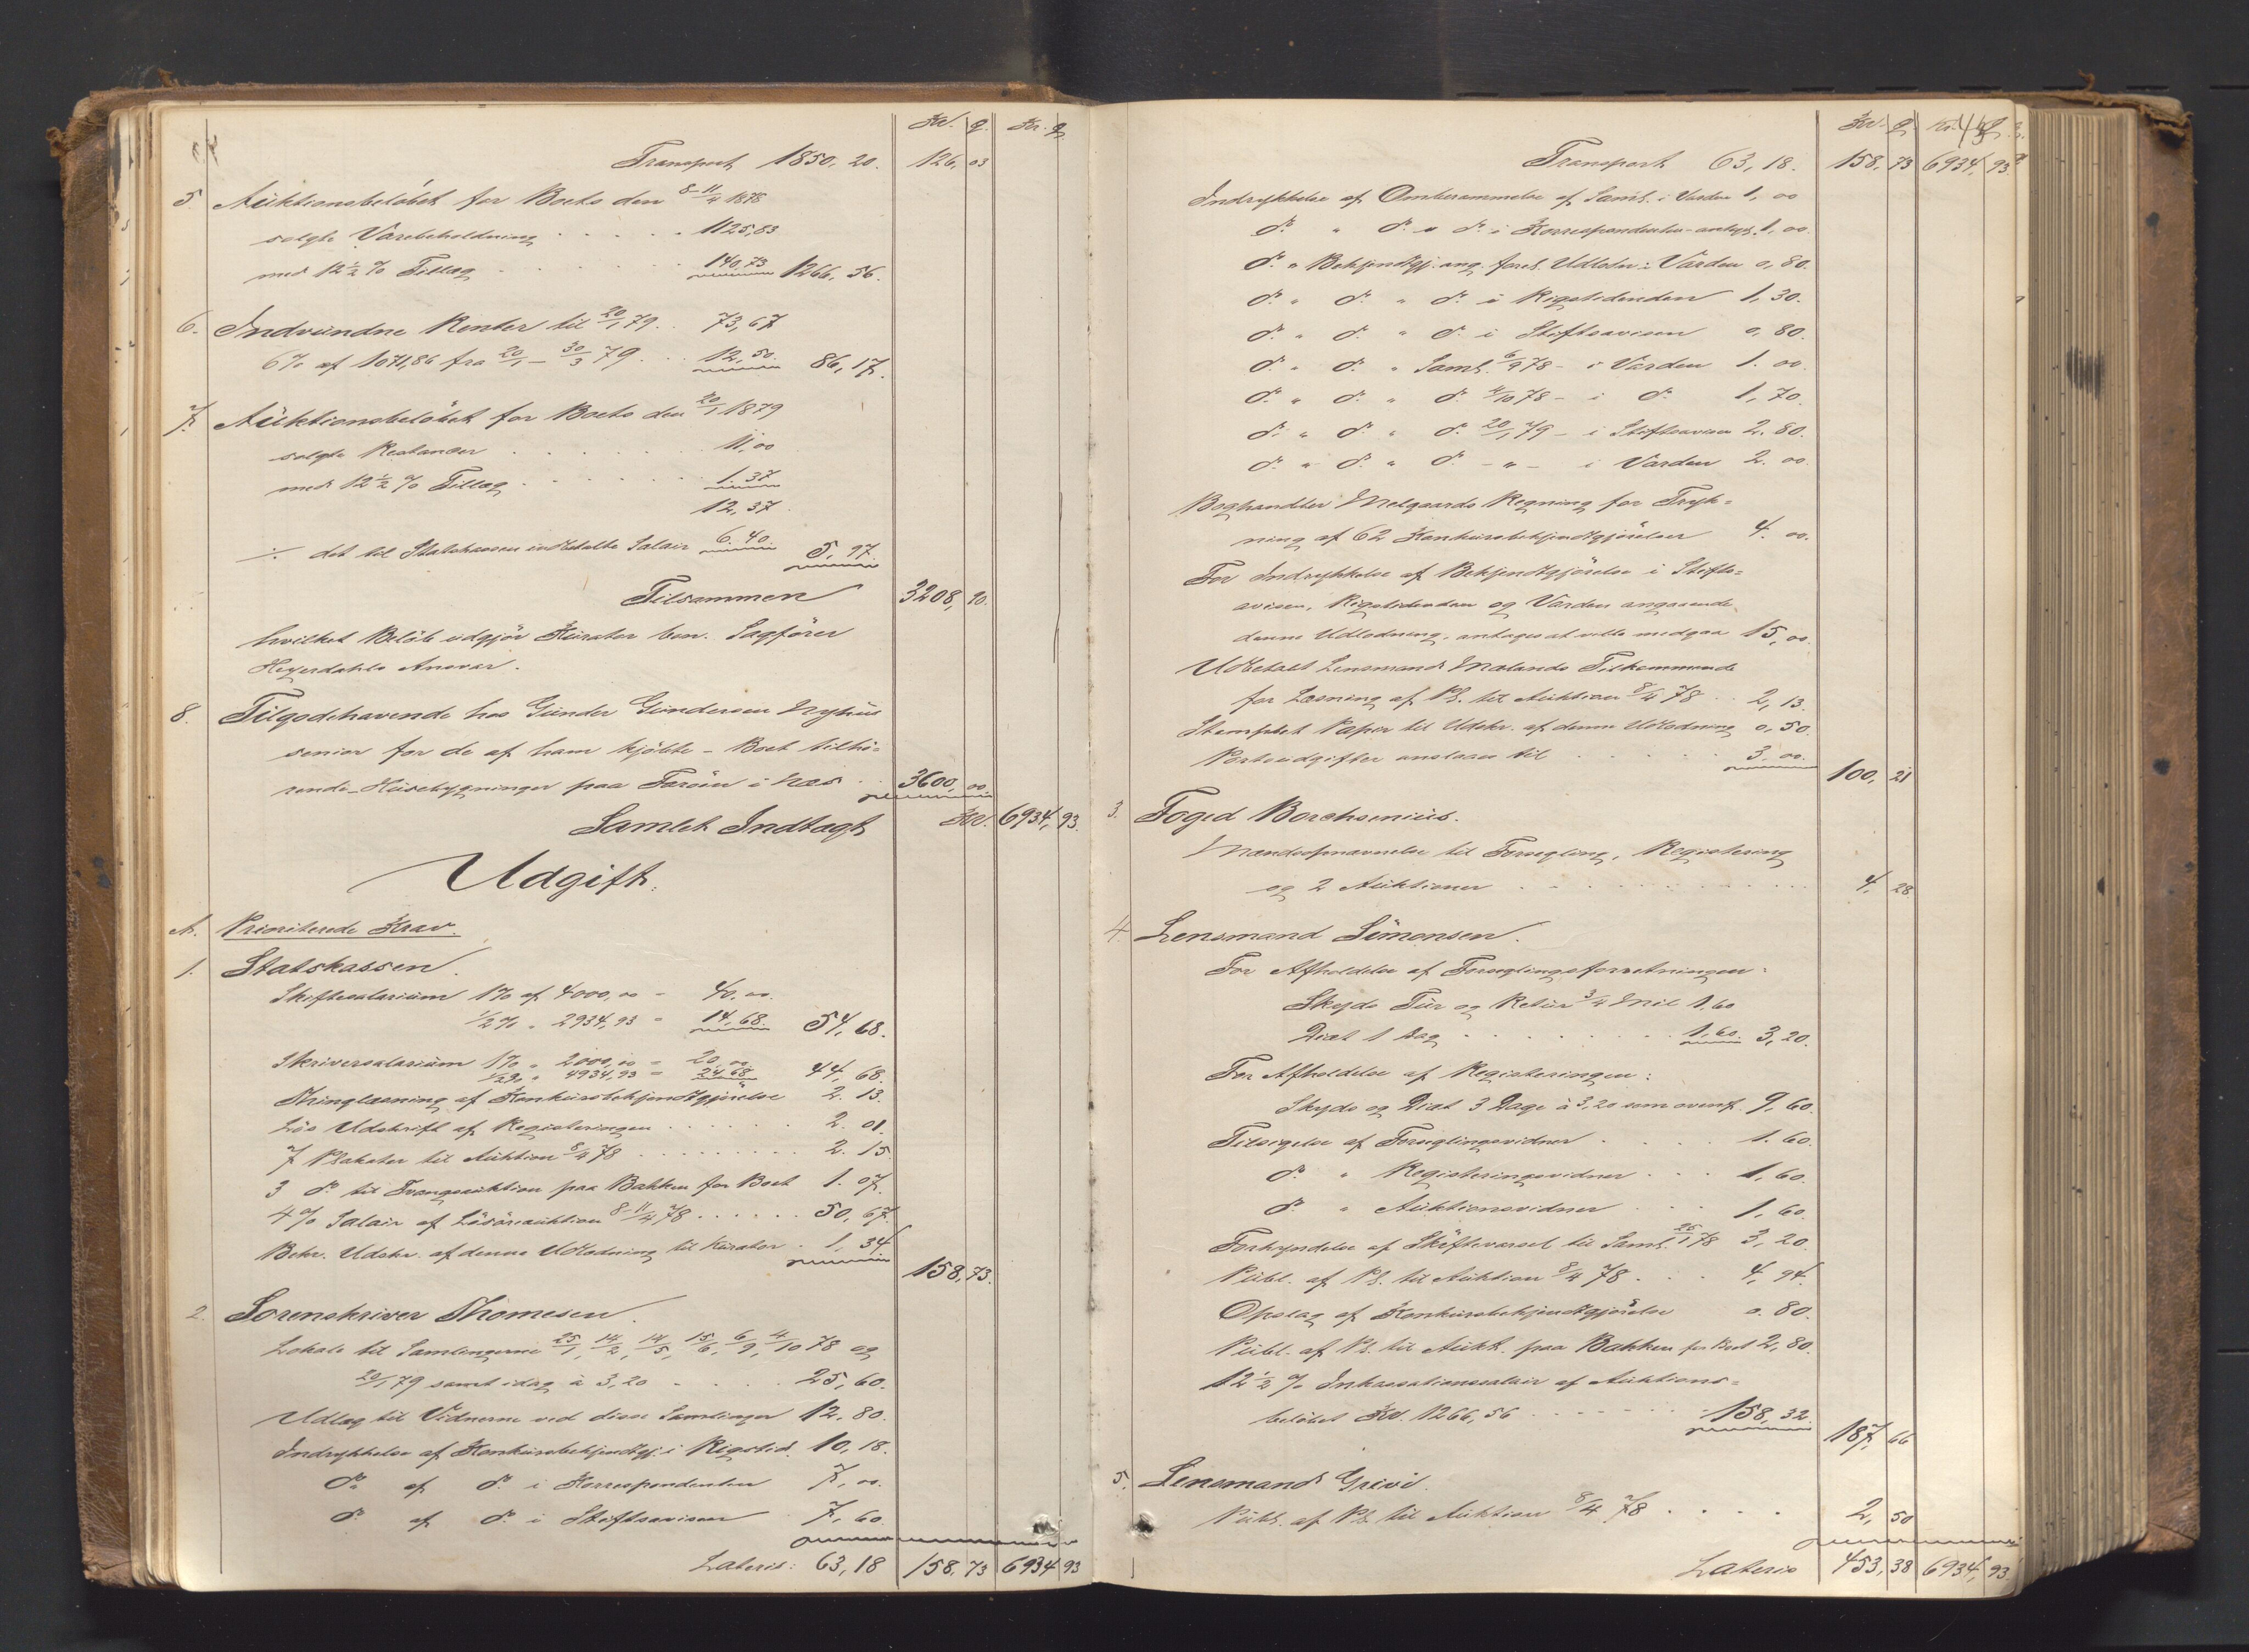 Kr. Ø. Kr. Ø.
Transport 1850,20. 126,03
5. Auktionsbeløbet for Boets den 8-11/4 1878
solgte Varebeholdning 1125,83
med 12½ % Tillæg 140,73 1266,56.
6. Indvundne Renter til 20/1 79. 73,67
6% af 1071,86 fra 20/1 - 30/3 79. 12,50. 86,17.
7. Auktionsbeløbet for Boets den 20/1 1879
solgte Restancer 11,00
med 12½ % Tillæg 1.37
12,37.
÷ det til Statskassen indbetalte Salair 6.40. 5,97.
Tilsammen 3208,90.
hvilket Beløb udgjør Kurator ben. Sagfører
Heyerdahls Ansvar.
8. Tilgodehavende hos Gunder Gundersen Nyhus
senior for de af ham kjøbte - Boet tilhø=
rende - Husebygninger paa Farøen i Næs 3600,00.
Samlet Indtægt Kr. 6934,93.
Udgift.
A. Prioriterede Krav.
1. Statskassen.
Skiftesalarium 1% af 4000,00 = 40,00.
1/2% " 2934,93 = 14,68. 54,68.
Skriversalarium 1% " 2000,00 = 20,00
1/2% " 4934,93 = 24,68 44,68.
Thinglæsning af Konkursbekjendtgjørelse 2.13.
Løs Udskrift af Registeringen 2.01.
7 Plakater til Auktion 8/4 78 2.15
3 do til Tvangsauktion paa Bakken for Boet 1.07.
4% Salair af Løsøreauktion 8-11/4 78 50,67.
Bekr. Udskr. af denne Udlodning til Kurator 1,34
158,73.
2. Sorenskriver Thomesen.
Lokale til Samlingerne 25/1, 14/2, 14/5, 15/6, 6/9, 4/10 78 og
20/1 79 samt idag à 3,20 25,60.
Udlæg til Vidnerne ved disse Samlinger 12,80.
Indrykkelse af Konkursbekjendtgj. i Rigstid. 10,18.
do af do i Korrespondenten 7,00.
do af do i Stiftsavisen 7,60.
Lateris: 63,18 158,73 6934,93
Kr. Ø. Kr. Ø.
Transport 63,18. 158,73 6934,93.
Indrykkelse af Omberammelse af Saml. i Varden 1,00
do " do " do i Korrespondenten 1,00.
do " Bekjendtgj. ang. forel. Udlodn. i Varden 0,80.
do " do " do i Rigstidenden 1,30.
do " do " do i Stiftsavisen 0,80.
do " do " Saml. 6/9 78 - i Varden 1.00
do " do " do 4/10 78 - i do 1,70.
do " do " do 20/1 79 - i Stiftsavisen 2.80.
do " do " do - " - i Varden 2.00.
Boghandler Melgaards Regning for Tryk=
ning af 62 Konkursbekjendtgjørelser 4.00.
For Indrykkelse af Bekjendtgjørelse i Stifts=
avisen, Rigstidenden og Varden angaaende
denne Udlodning, antages at ville medgaa 15,00.
Udbetalt Lensmand Mælands Tilkommende
for Læsning af Pl. til Auktion 8/4 78 2,13.
Stemplet Papir til Udskr. af denne Udlodning 0,50.
Portoudgifter ansloges til 3.00.
100,21
3. Foged Borchsenius.
Mandsopnævnelse til Forsegling, Registering
og 2 Auktioner 4,28
4. Lensmand Simonsen.
For Afholdelse af Forseglingsforretningen:
Skyds Tur og Retur 3/4 Mil 1,60
Diæt 1 Dag 1,60. 3,20.
For Afholdelse af Registeringen:
Skyds og Diæt 3 Dage à 3,20 som ovenf. 9,60.
Tilsigelse af Forseglingsvidner 1.60.
do " Registeringsvidner 1,60.
do " Auktionsvidner 1,60.
Forkyndelse af Skiftevarsel til Saml. 25/1 78 3,20.
Publ. af Pl. til Auktion 8/4 78 4,94.
Opslag af Konkursbekjendtgjørelse 0.80.
Publ. af Pl. til Aukt. paa Bakken for Boet 2,80.
12½ % Inkassationssalair af Auktions=
beløbet Kr. 1266,56 158,32.
187,66
5. Lensmand Grivi.
Publ. af Pl. til Auktion 8/4 78 2,50
Lateris 453,38 6934,93.